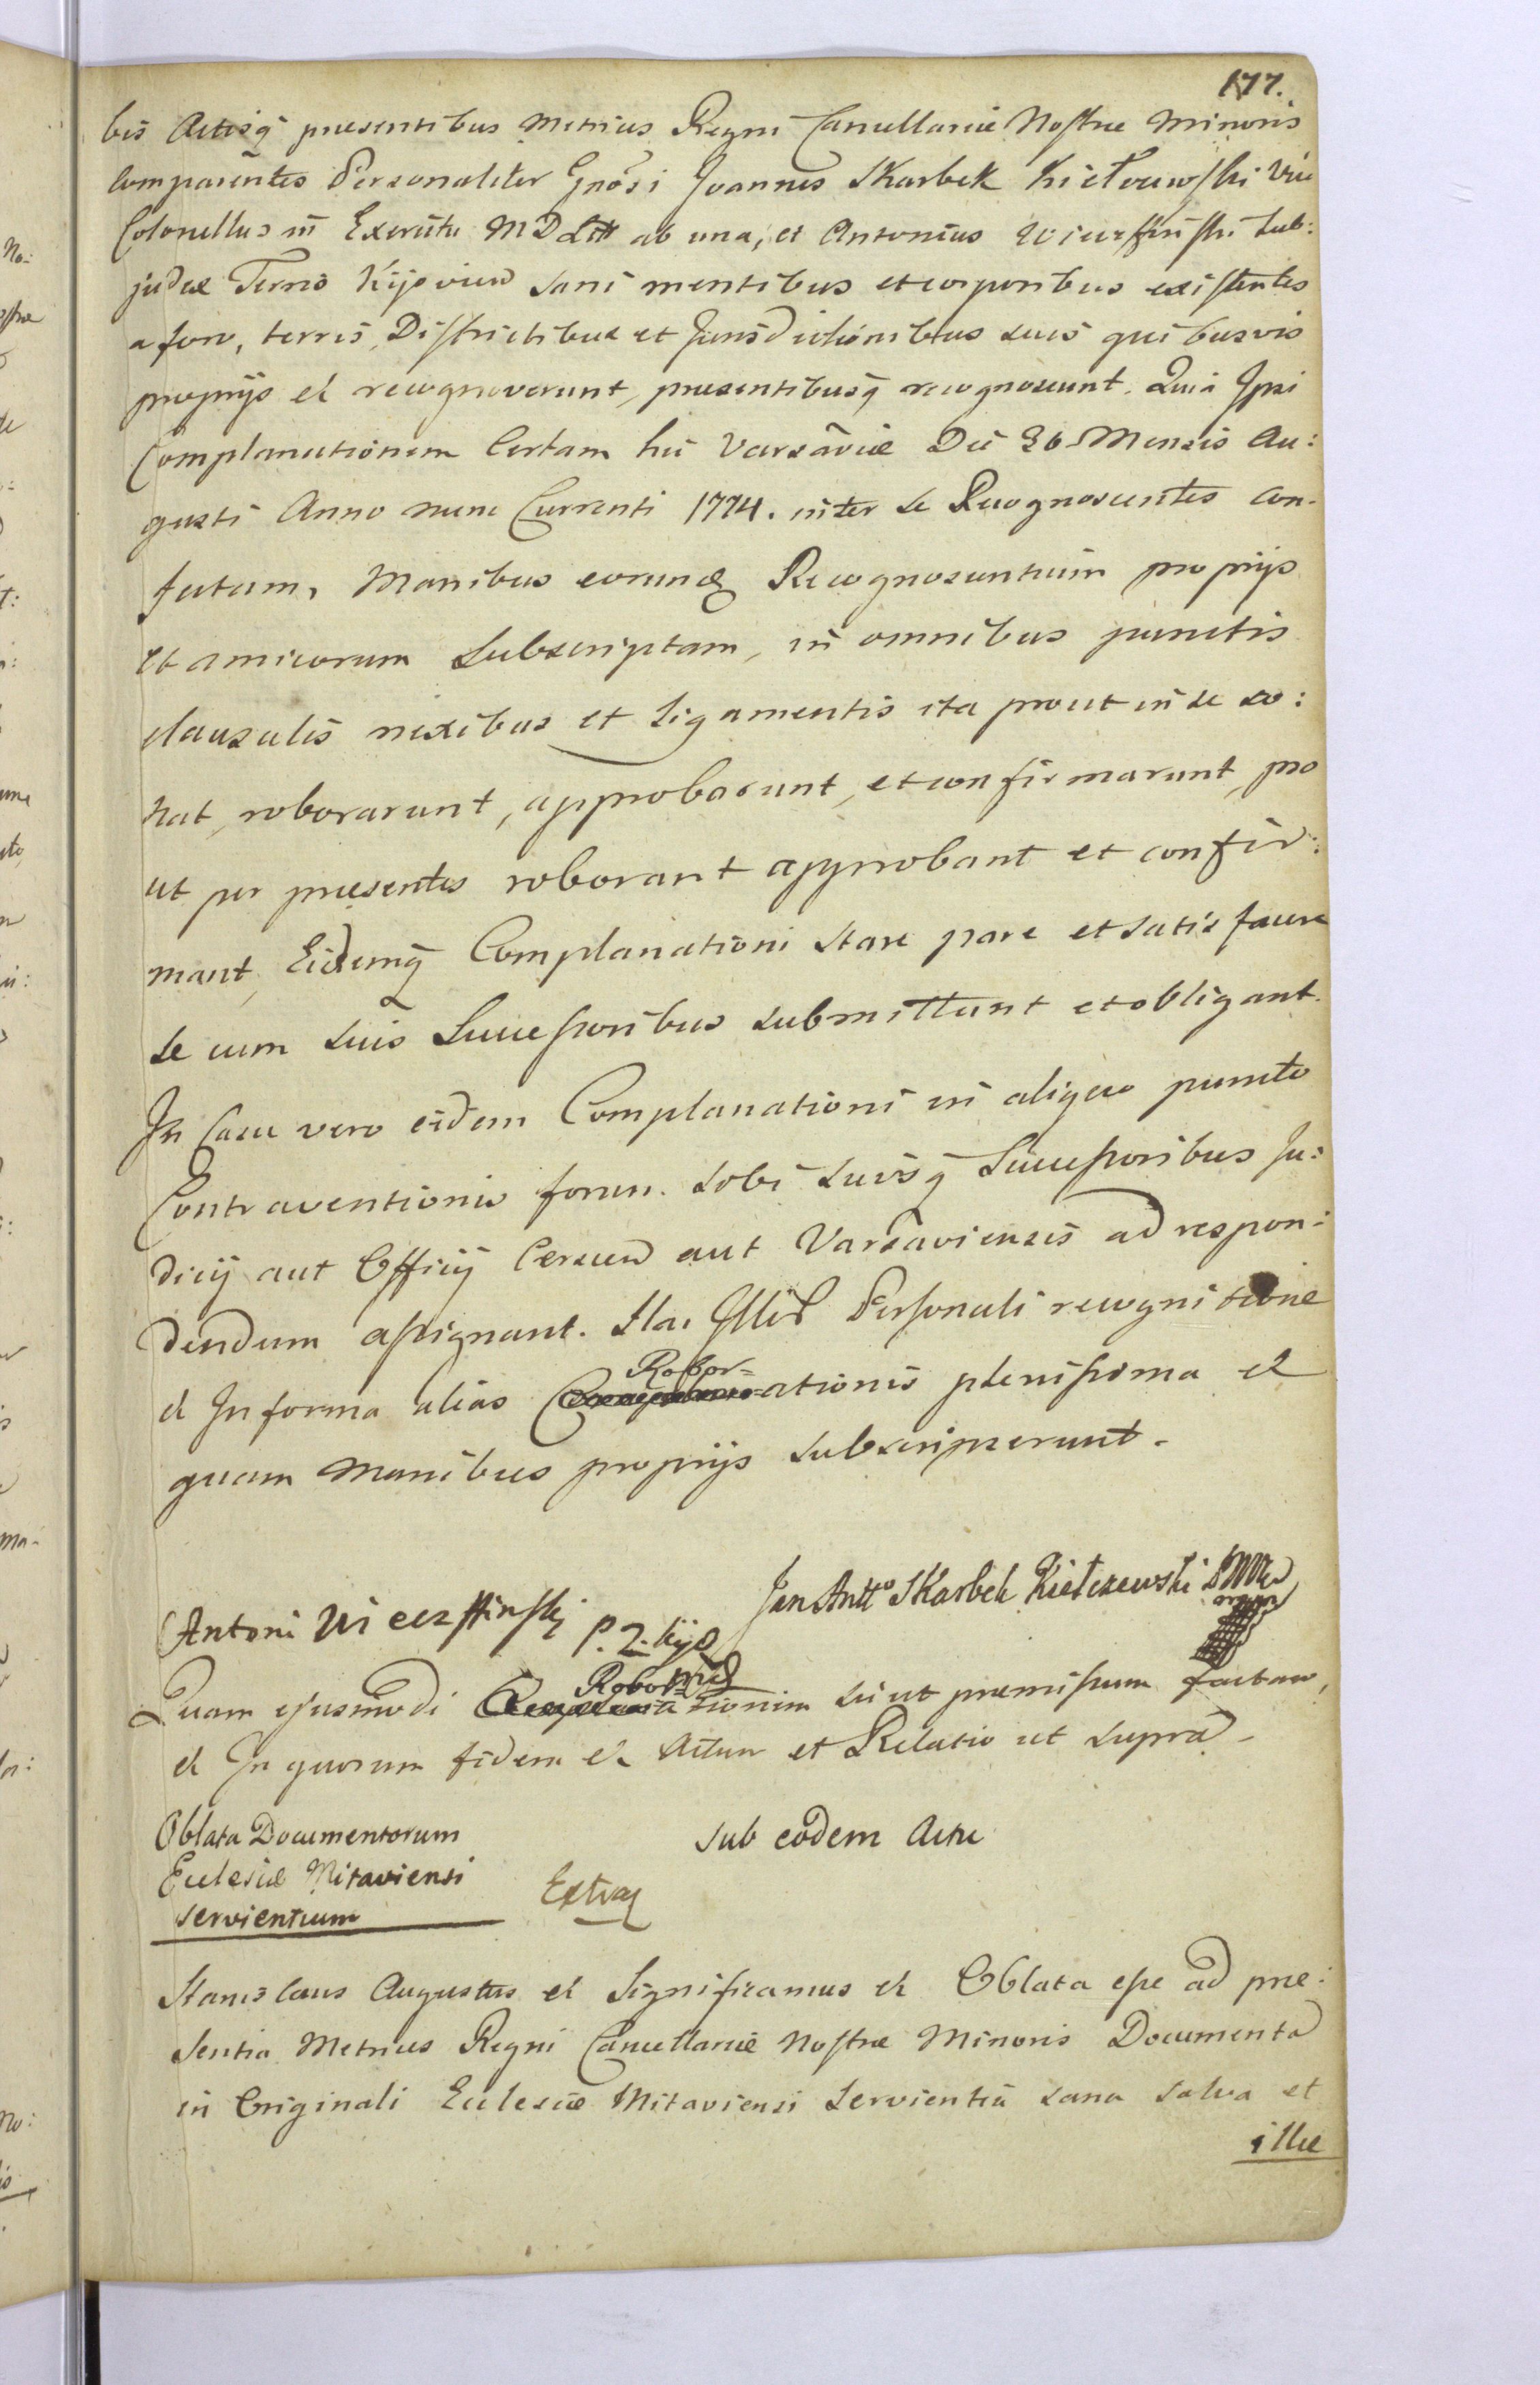 177.
bis Actisq̃ presentibus Metrices Regni Cancellariæ Nostræ Minoris
comparentes Personaliter Gnõsi Joannes Skarbek Kiełczewski Vice
Colonellus in Exercitu M D Litt ab una, et Antonius Wieczffinski Sub:
judex Terrẽs Kijovien sani mentibus et corporibus existentes
a foro, terris, Districtibus et Jurisdictionibus suis quibusvis
proprijs et recognoverunt, presentibusq̃ recognoscunt. Quia Ipsi
Complanationem Certam hic Varsaviæ Die 26 Mensis Au:
gusti Anno nunc Currenti 1774. inter se Recognoscentes con-
fectam, Manibus eorundẽ Recognoscentium proprijs
et amicorum subscriptam, in omnibus punctis
clausulis nexibus et ligamentis ita prout in se so:
nat, roborarunt, approbarunt, et confirmarunt, pro
ut per presentes roborant approbant et confir:
mant, Eidemq̃ Complanationi stare pare et satisfacere
se cum suis Successoribus submittunt et obligant.
In Casu vero eidem Complanationi in aliquo puncto
Contraventionis forum. sobi suisq̃ Successoribus Ju:
dicij aut Officij Cerscen aut Varsaviensis ad respon:
dendum assignant. Hac Personali recognitione
et In forma alias Robor=ationis plenissima et
quam Manibus proprijs subscripserunt.
Jan Antto Skarbek Kiełczewski
Antoni Wieczffinski P. Z. Kijo
Quam ejusmodi Robor=ationem sic ut premissum factam,
et In quorum fidem et Actum et Relatio ut supra.
Oblata Documentorum sub eodem Actu
Ecclesiæ Mitaviensi
servientium Extrad
Stanislaus Augustus et Significamus et Oblata esse ad præ:
sentia Metrices Regni Cancellariæ Nostræ Minoris Documenta
in Originali Ecclesiæ Mitaviensi Servientia sana salva et
illæ